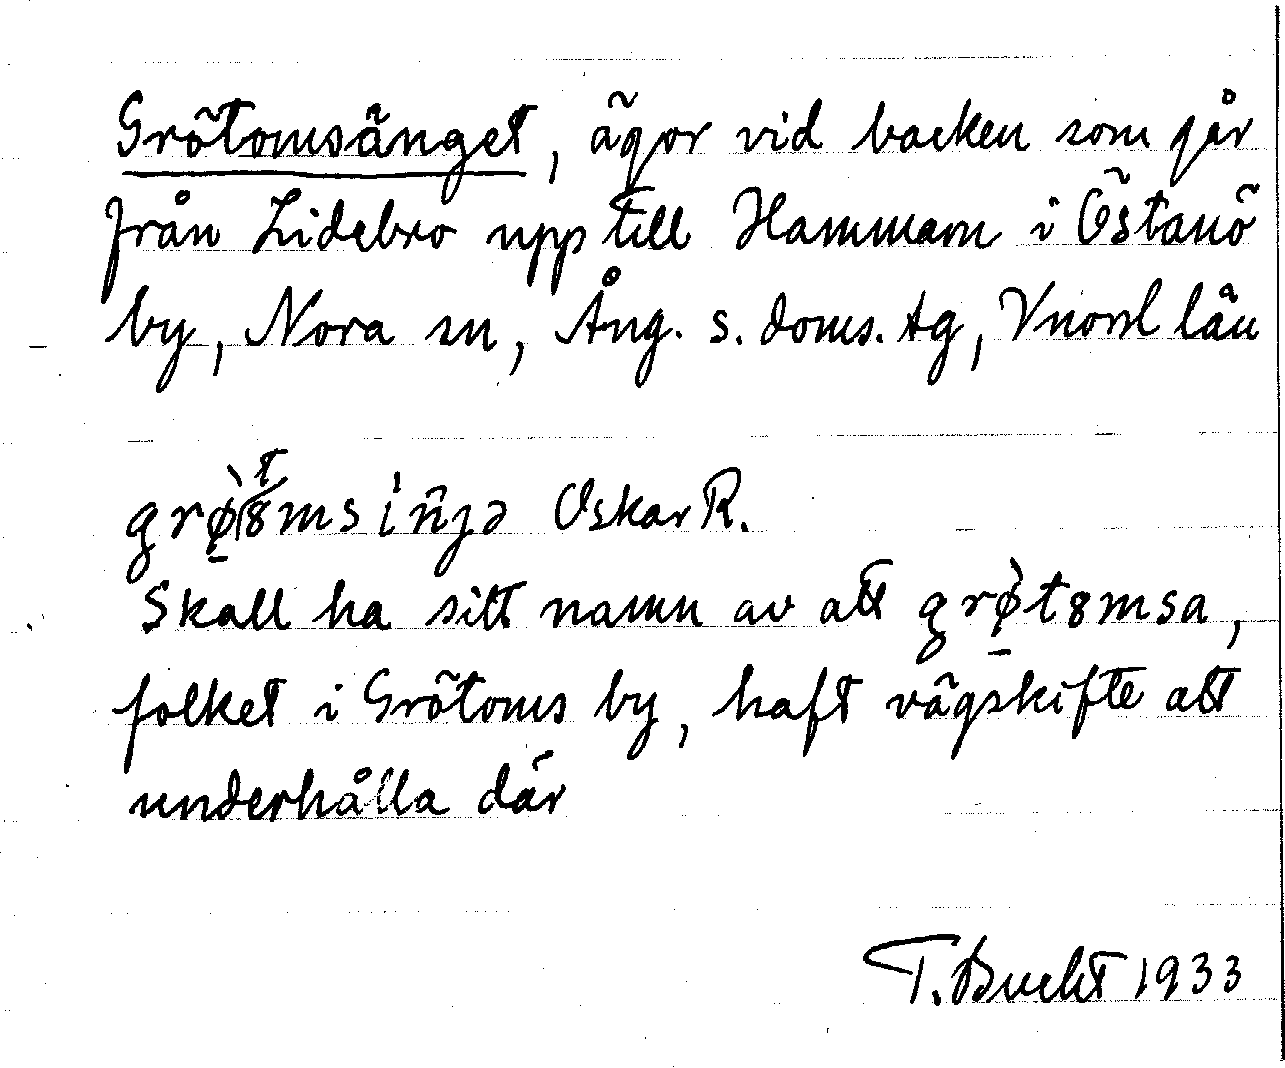 Grötomsänget, ägor vid backen som går
från Lidebro upp till Hammarn i Östanö
by, Nora sn, Ång. s. doms. tg, Vnorrl län
grø̀t8msìŋ̃ɟə Oskar R.
Skall ha sitt namn av att grø̀t8msa,
folket i Grötoms by, haft vägskifte att
underhålla där
T. Bucht 1933